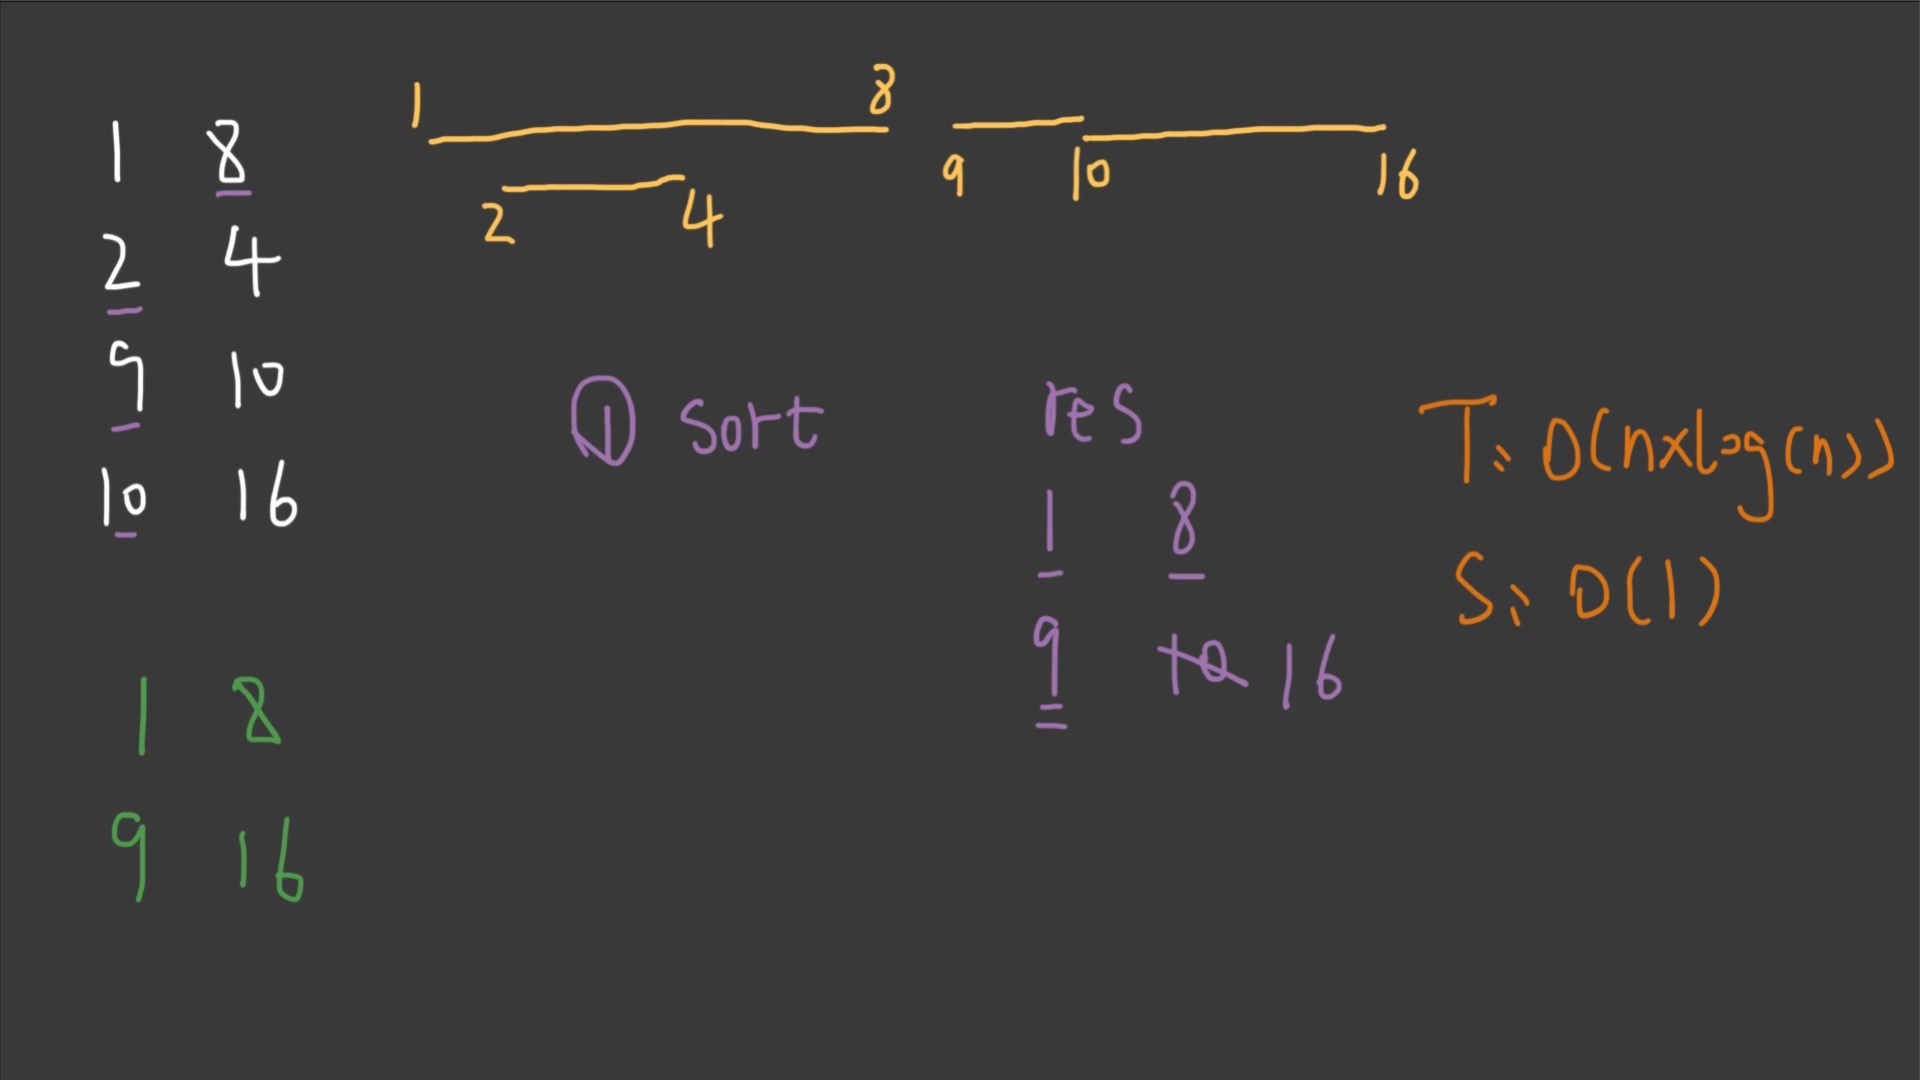 1 8
2 4
9 10
10 16
1 8
9 16
1 8
2 4
9 10 16
① Sort
res
1 8
9 10 16
T: O(n×log(n))
S: O(1)